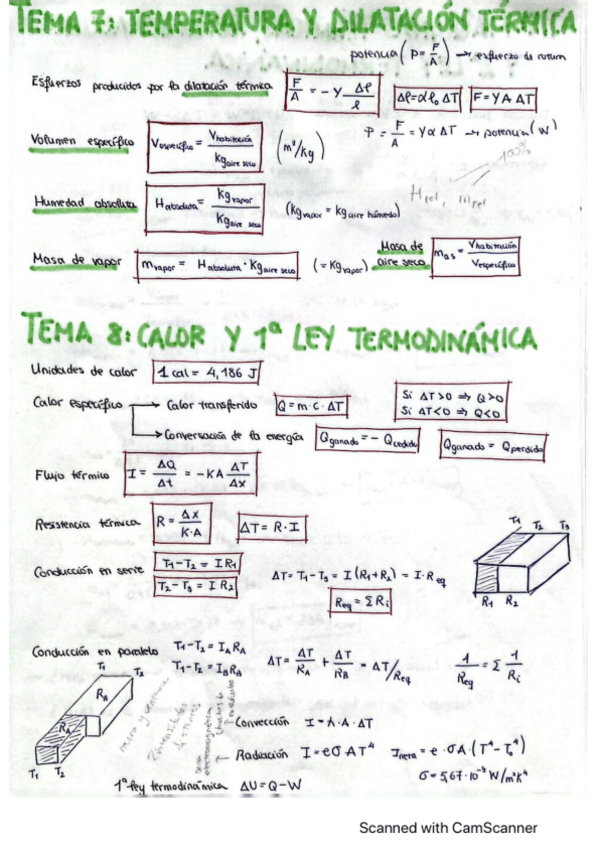 TEMA 7: TEMPERATURA Y DILATACIÓN TÉRMICA
potencia (P = F/A) → esfuerzo de rotura
Esfuerzos producidos por la dilatación térmica F/A = -Y Δl/l Δl = α l₀ ΔT F = Y A ΔT
P = F/A = Yα ΔT → potencia (W)
Volumen específico Vespecífico = Vhabitación / Kgaire seco (m³/kg)
100%
Humedad absoluta Habsoluta = Kgvapor / Kgaire seco (Kgvapor = Kgaire húmedo)
Masa de vapor mvapor = Habsoluta · Kgaire seco (= Kgvapor) Masa de aire seco mas = Vhabitación / Vespecífico
TEMA 8: CALOR Y 1ª LEY TERMODINÁMICA
Unidades de calor 1 cal = 4,186 J
Calor específico → Calor transferido Q = m·c·ΔT Si ΔT>0 ⇒ Q>0
Si ΔT<0 ⇒ Q<0
→ Conversación de la energía Qganado = - Qcedido Qganado = Qperdido
Flujo térmico I = ΔQ/Δt = -KA ΔT/Δx
Resistencia térmica R = Δx/K·A ΔT = R·I
T1 T2 T3
Conducción en serie T1-T2 = I R1
T2-T3 = I R2
ΔT = T1-T3 = I (R1+R2) = I·Req
Req = ΣRi
R1 R2
Conducción en paralelo T1-T2 = IA RA
T1-T2 = IB RB
ΔT = ΔT/RA + ΔT/RB = ΔT/Req 1/Req = Σ 1/Ri
T1 T2
RB
RA
T1 T2
Convección I = h·A·ΔT
Radiación I = eσ AT⁴ Ineta = e·σA·(T⁴-T₀⁴)
σ = 5,67·10⁻⁸ W/m²K⁴
1ª ley termodinámica ΔU = Q - W
Scanned with CamScanner